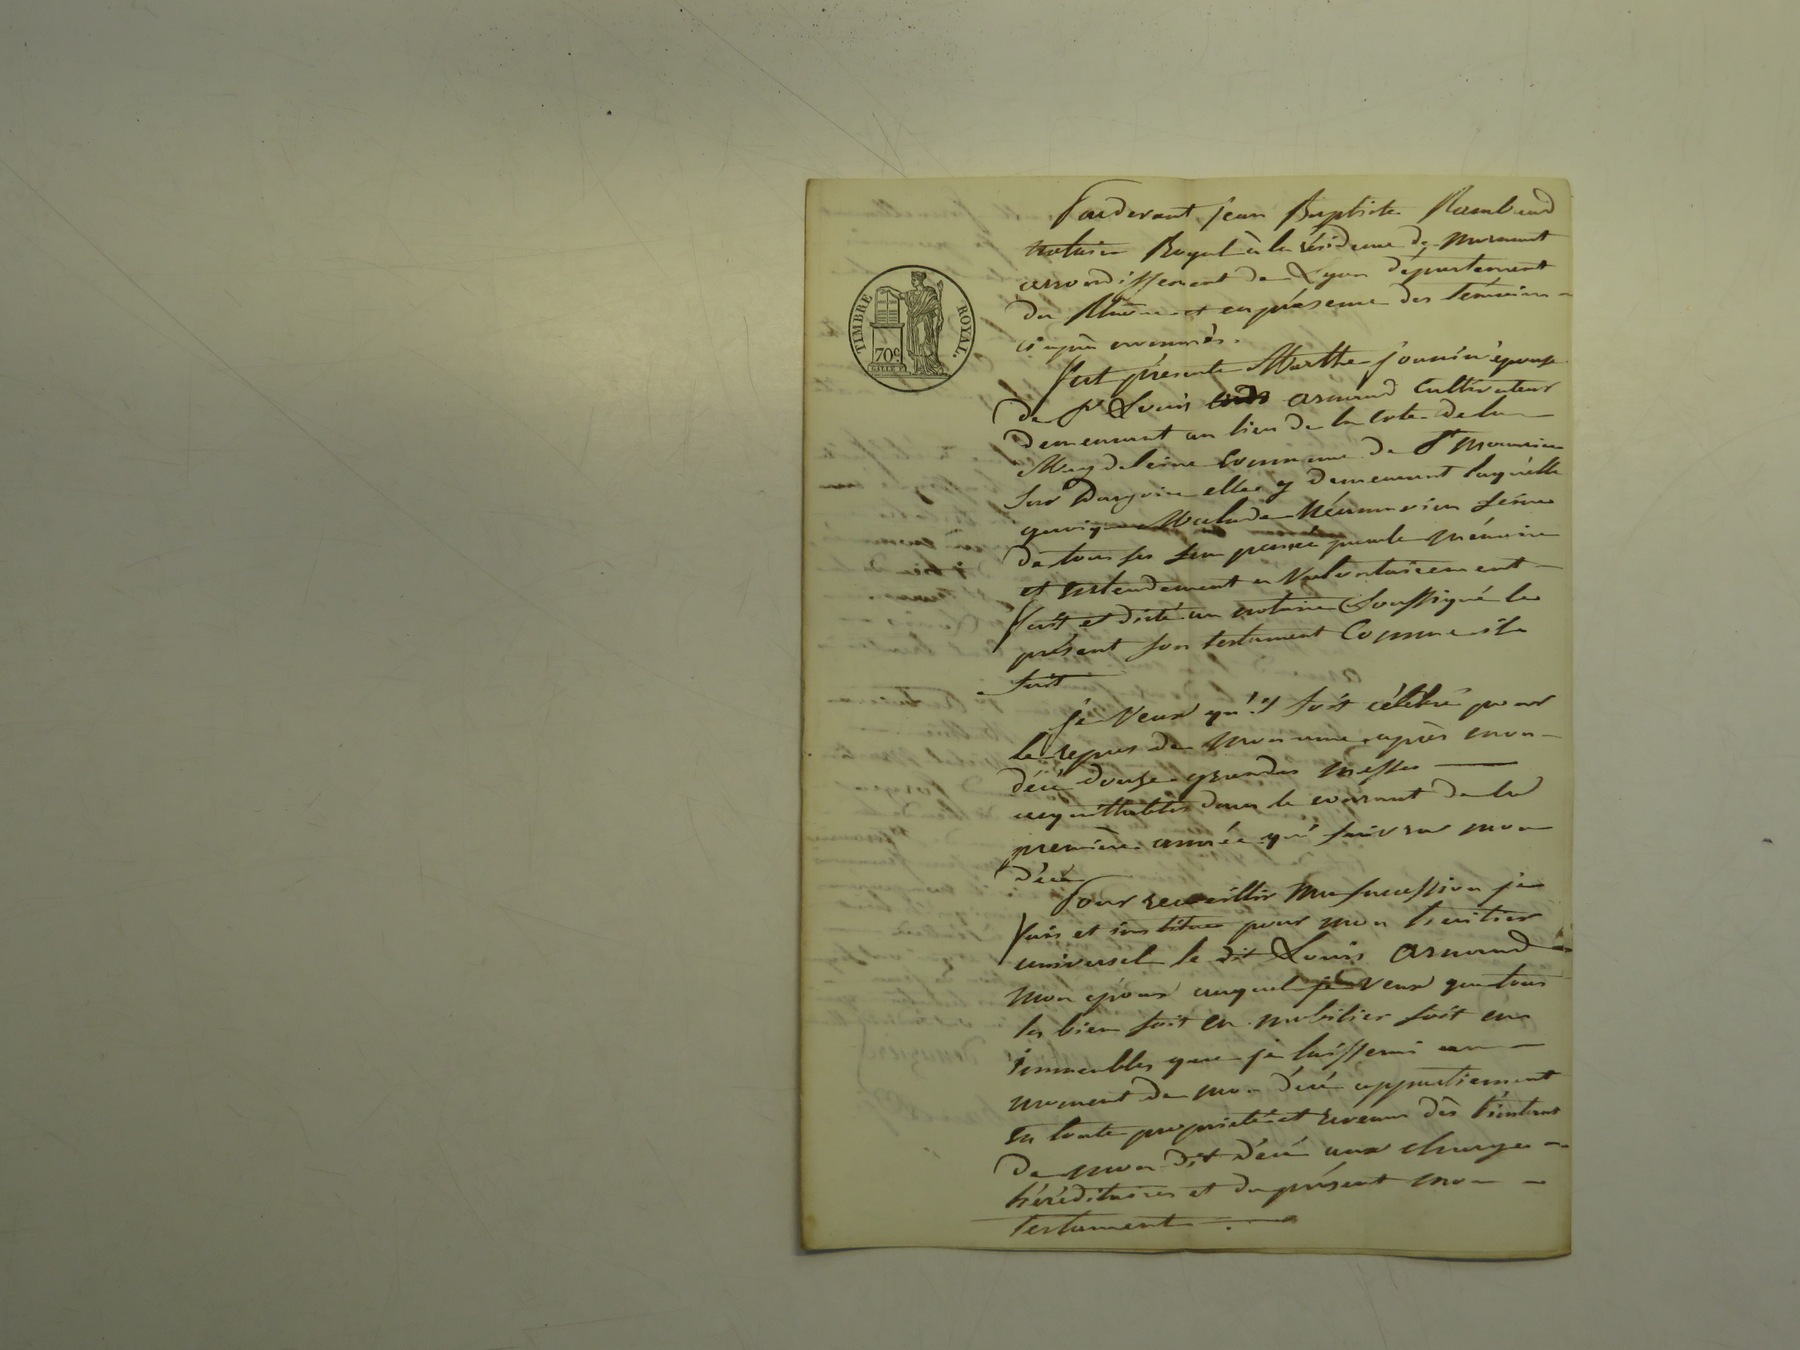 TIMBRE ROYAL.
70c.
Pardevant jean Baptiste Rambaud
notaire Royal à la résidence de mornant
arrondissement de Lyon département
du Rhône et en présence des témoins
ci après nommés.
fut présente Marthe jounin épouse
de sr Louis armand cultivateur
demeurant au lieu de la cote de la
Magdeleine commune de St maurice
sur Dargoire elle y demeurant laquelle
quoique Malade Néanmoins seine
de tous ses sen pensée parole mémoire
et entendement a Volontairement
fait et dicté au notaire soussigné le
présent son testament Comme sile
suit
je Veux qu'il soit célébré pour
le repos de mon ame après mon
décé douze grandes messes
acquittables dans le courant de la
première année qui suivra mon
décé
Pour recueillir ma succession je
fais et institue pour mon héritier
universel le dit Louis armand
mon epoux auquel je veux que tous
les bien soit en mobilier soit en
immeubles que je laisserai au
moment de mon décé appartiennent
en toute propriété et revenu dès l'instant
de mon dit décé aux charges
héréditaires et du présent mon
testament.